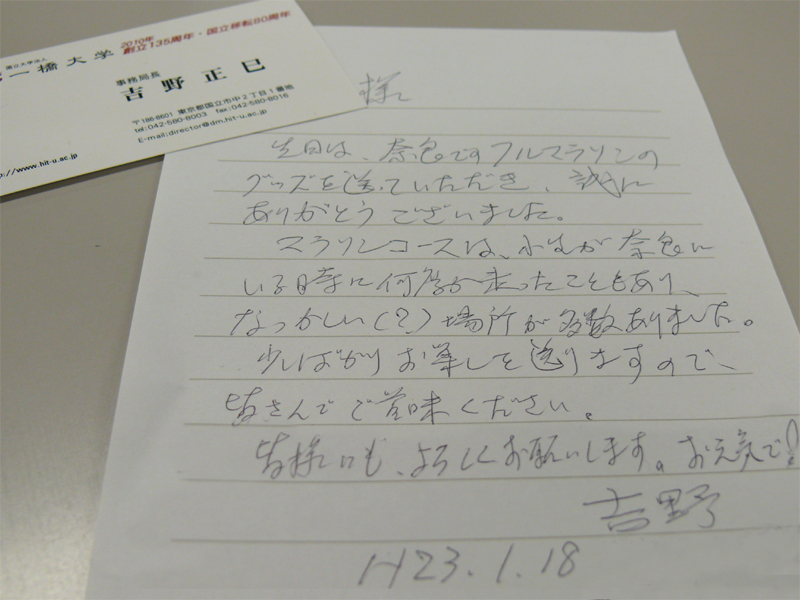 国立大学法人
一橋大学
2010年
創立135周年・国立移転80周年
事務局長
吉野正巳
〒186-8601 東京都国立市中2丁目1番地
tel:042-580-8003 fax:042-580-8016
E-mail:director@dm.hit-u.ac.jp
http://www.hit-u.ac.jp
様
先日は、奈良でするフルマラソンの
グッズを送っていただき、誠に
ありがとうございました。
マラソンコースは、小生が奈良に
いる時に何度か走ったこともあり、
なつかしい(?)場所が多数ありました。
少しばかりお菓子を送りますので、
皆さんでご賞味ください。
皆様にも、よろしくお願いします。お元気で!
吉野
H23.1.18